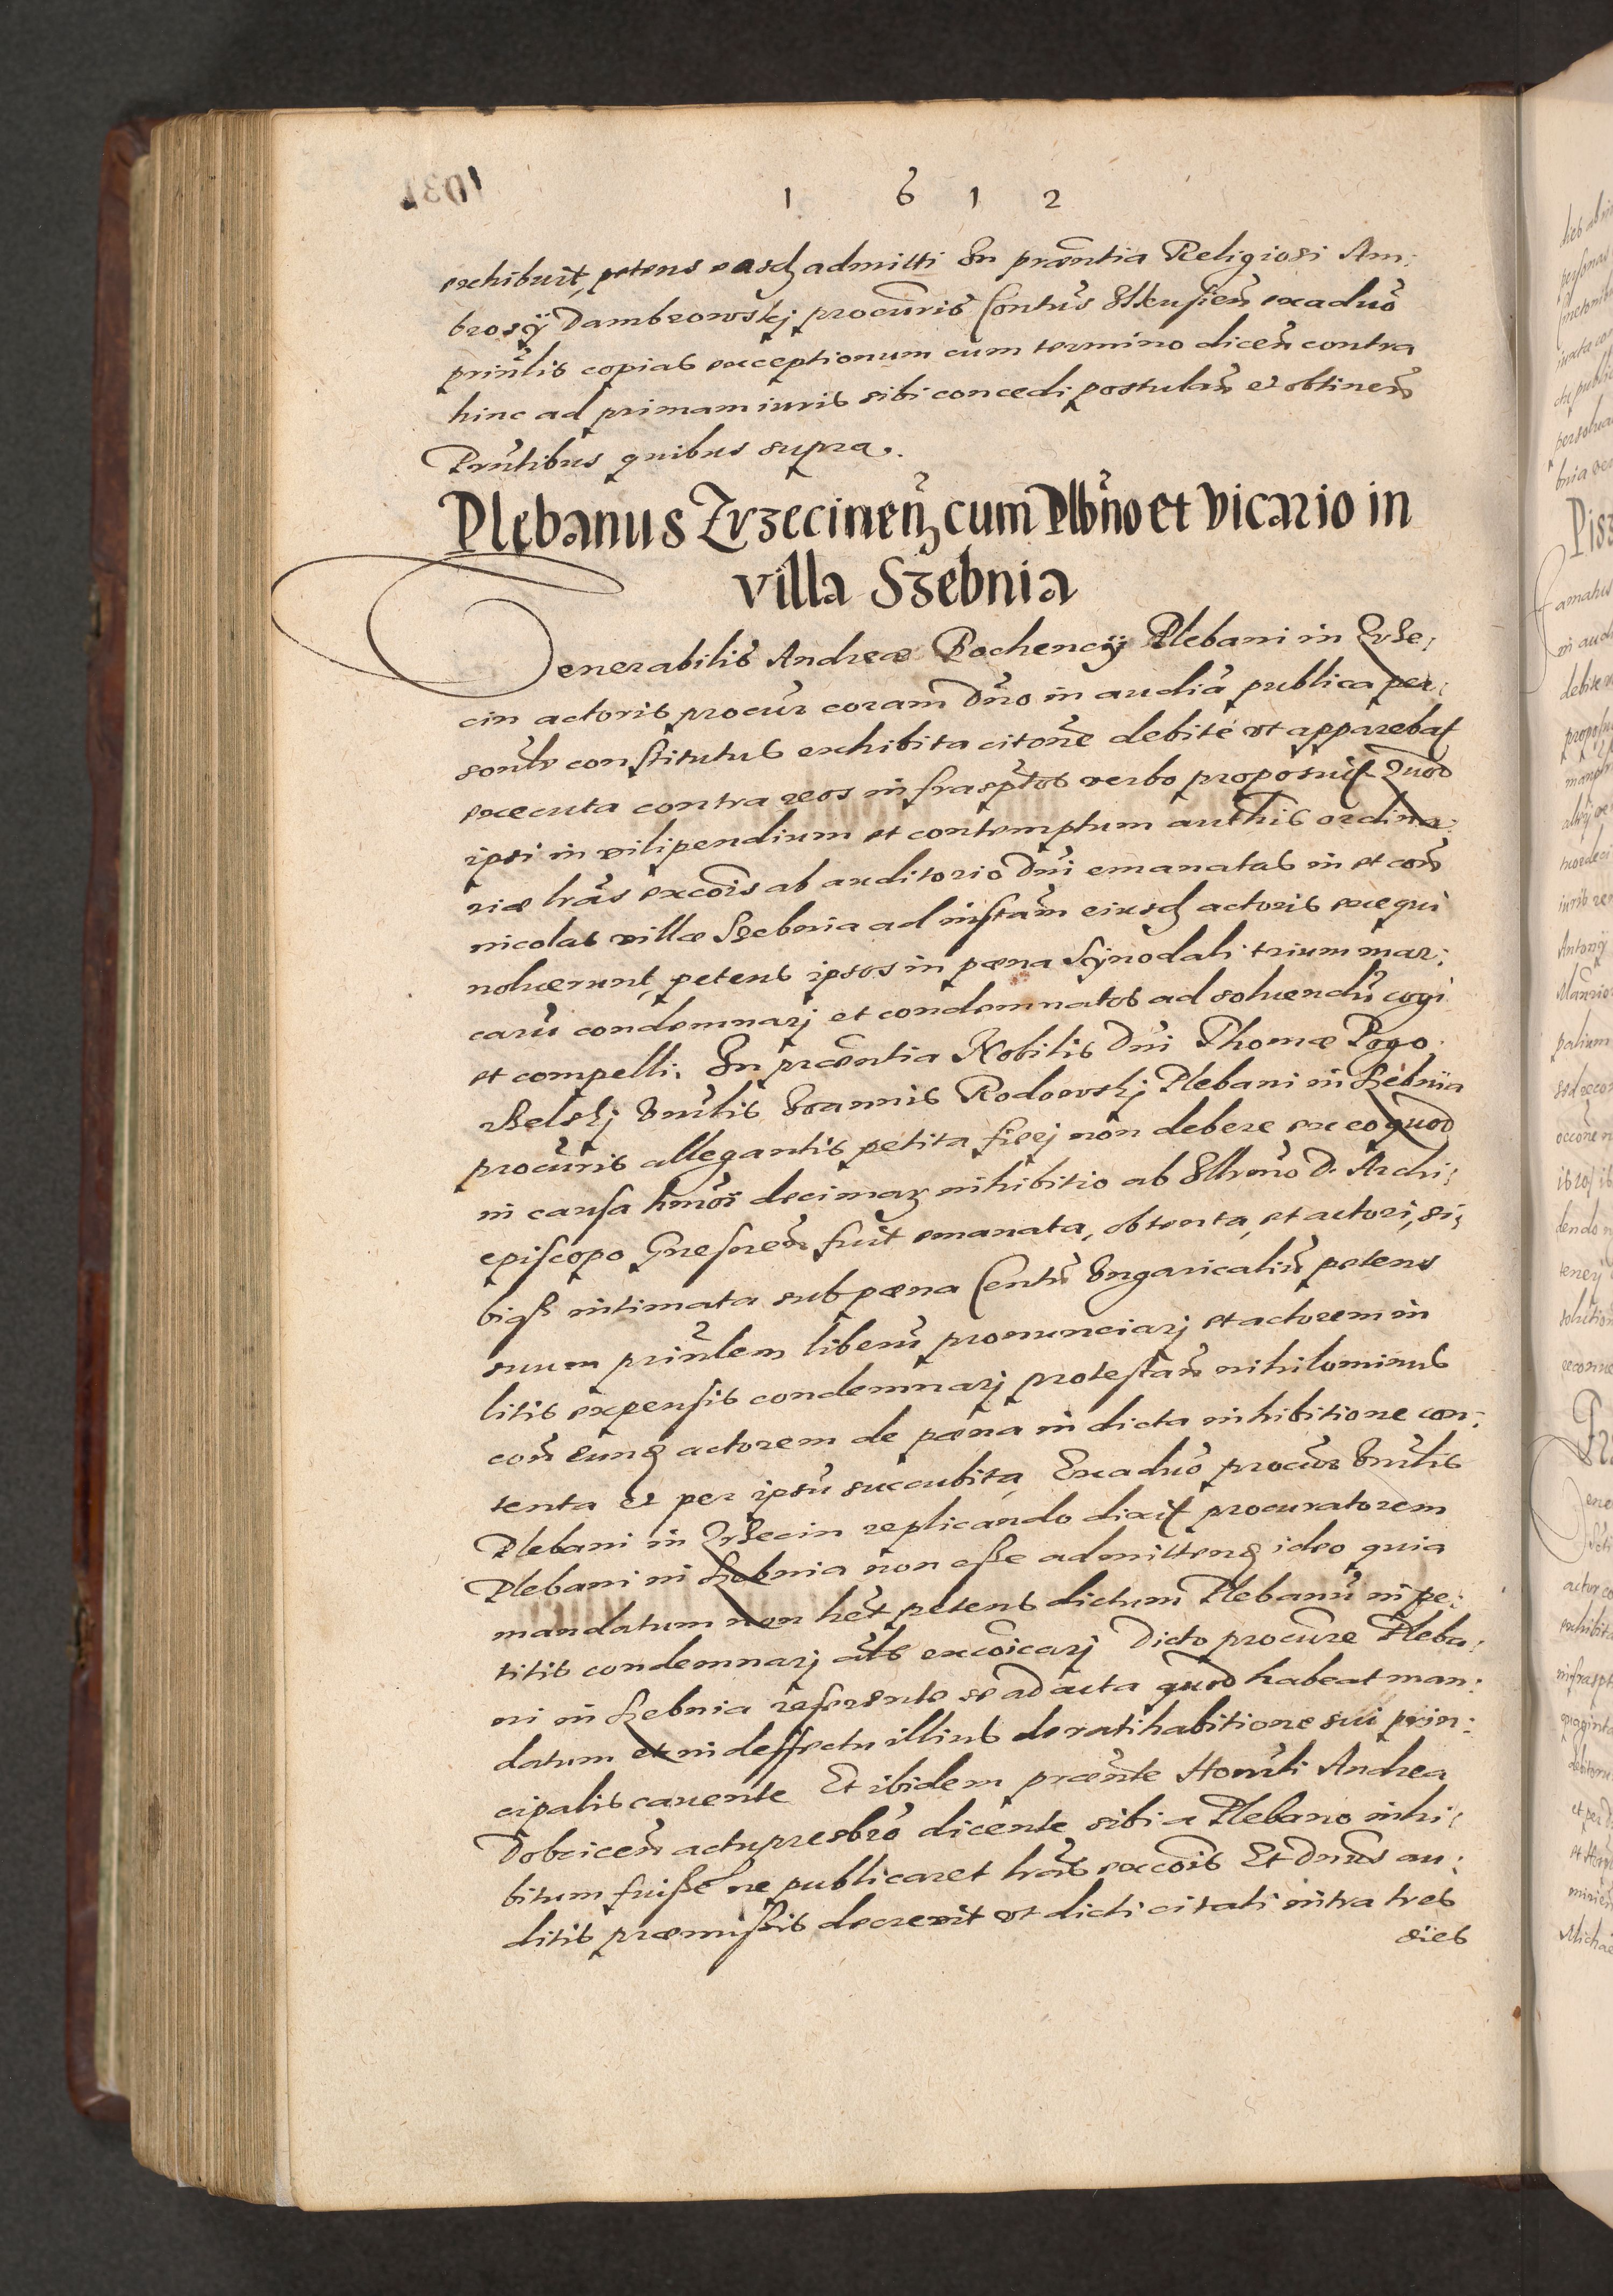 1612
exhibuit, petens easdem admitti In prñtia Religiosi Am:
brosij Dambrowskj procuris Contus Ilkusien̄ ex aduo
prinlis copias exceptionum cum termino dicen̄ contra
hinc ad primam iuris sibi concedi postulan̄ et obtinen̄
Prn̄tibus quibus supra.
Plebanus Trzecinen̄ cum Plbño et vicario in
villa Szebnia
Venerabilis Andreæ Bochencij Plebani in Trze:
cin actoris procur̄ coram Dño in audiā publica per:
sonlr constitutus exhibita citone debite vt apparebat
executa contra reos infrasptos verbo proposuit Quod
ipsi in vilipendium et contemptum authis ordina:
riæ lrās excōis ab auditorio Dñi emanatas in et con̄
nicolas villæ Szebnia ad instan̄ eiusd actoris exequi
noluerunt, petens ipsos in pæna Synodali trium mar:
carū condemnarj et condemnatos ad soluendū cogi
et compelli. In præntia Nobilis Dñi Thomæ Pogo
rzelskj Vnlis Ioannis Rodowskj Plebani in Szebnia
procuris allegantis petita fierj non debere ex eo quod
in causa hmōi decimarum inhibitio ab Illmo D. Archi:
episcopo Gnesnen̄ fuit emanata, obtenta, et actori, si:
biqß intimata sub pæna Centū Vngaricaliū petens
suum prinlem liberū pronunciarj et actorem in
litis expensis condemnarj protestan̄ nihilominus
con̄ eund actorem de pæna in dicta inhibitione con:
tenta et per ipsū succubita Ex aduo procur Vnlis
Plebani in Trzecin replicando dixit procuratorem
Plebani in Szebnia non esse admittend ideo quia
mandatum non het petens dictum Plebanū in pe:
titis condemnarj als excōicarj Dicto procure Pleba:
ni in Szebnia referente se ad acta quod habeat man:
datum et in deffectu illius de ratihabitione sui prin:
cipalis cauente Et ibidem præn̄te Honrli Andrea
Dobcicen̄ actu presbro dicente sibi a Plebano inhi:
bitum fuisse ne publicaret lrās excōis Et Dnus au:
ditis præmissis decreuit vt dicti citati intra tres
dies